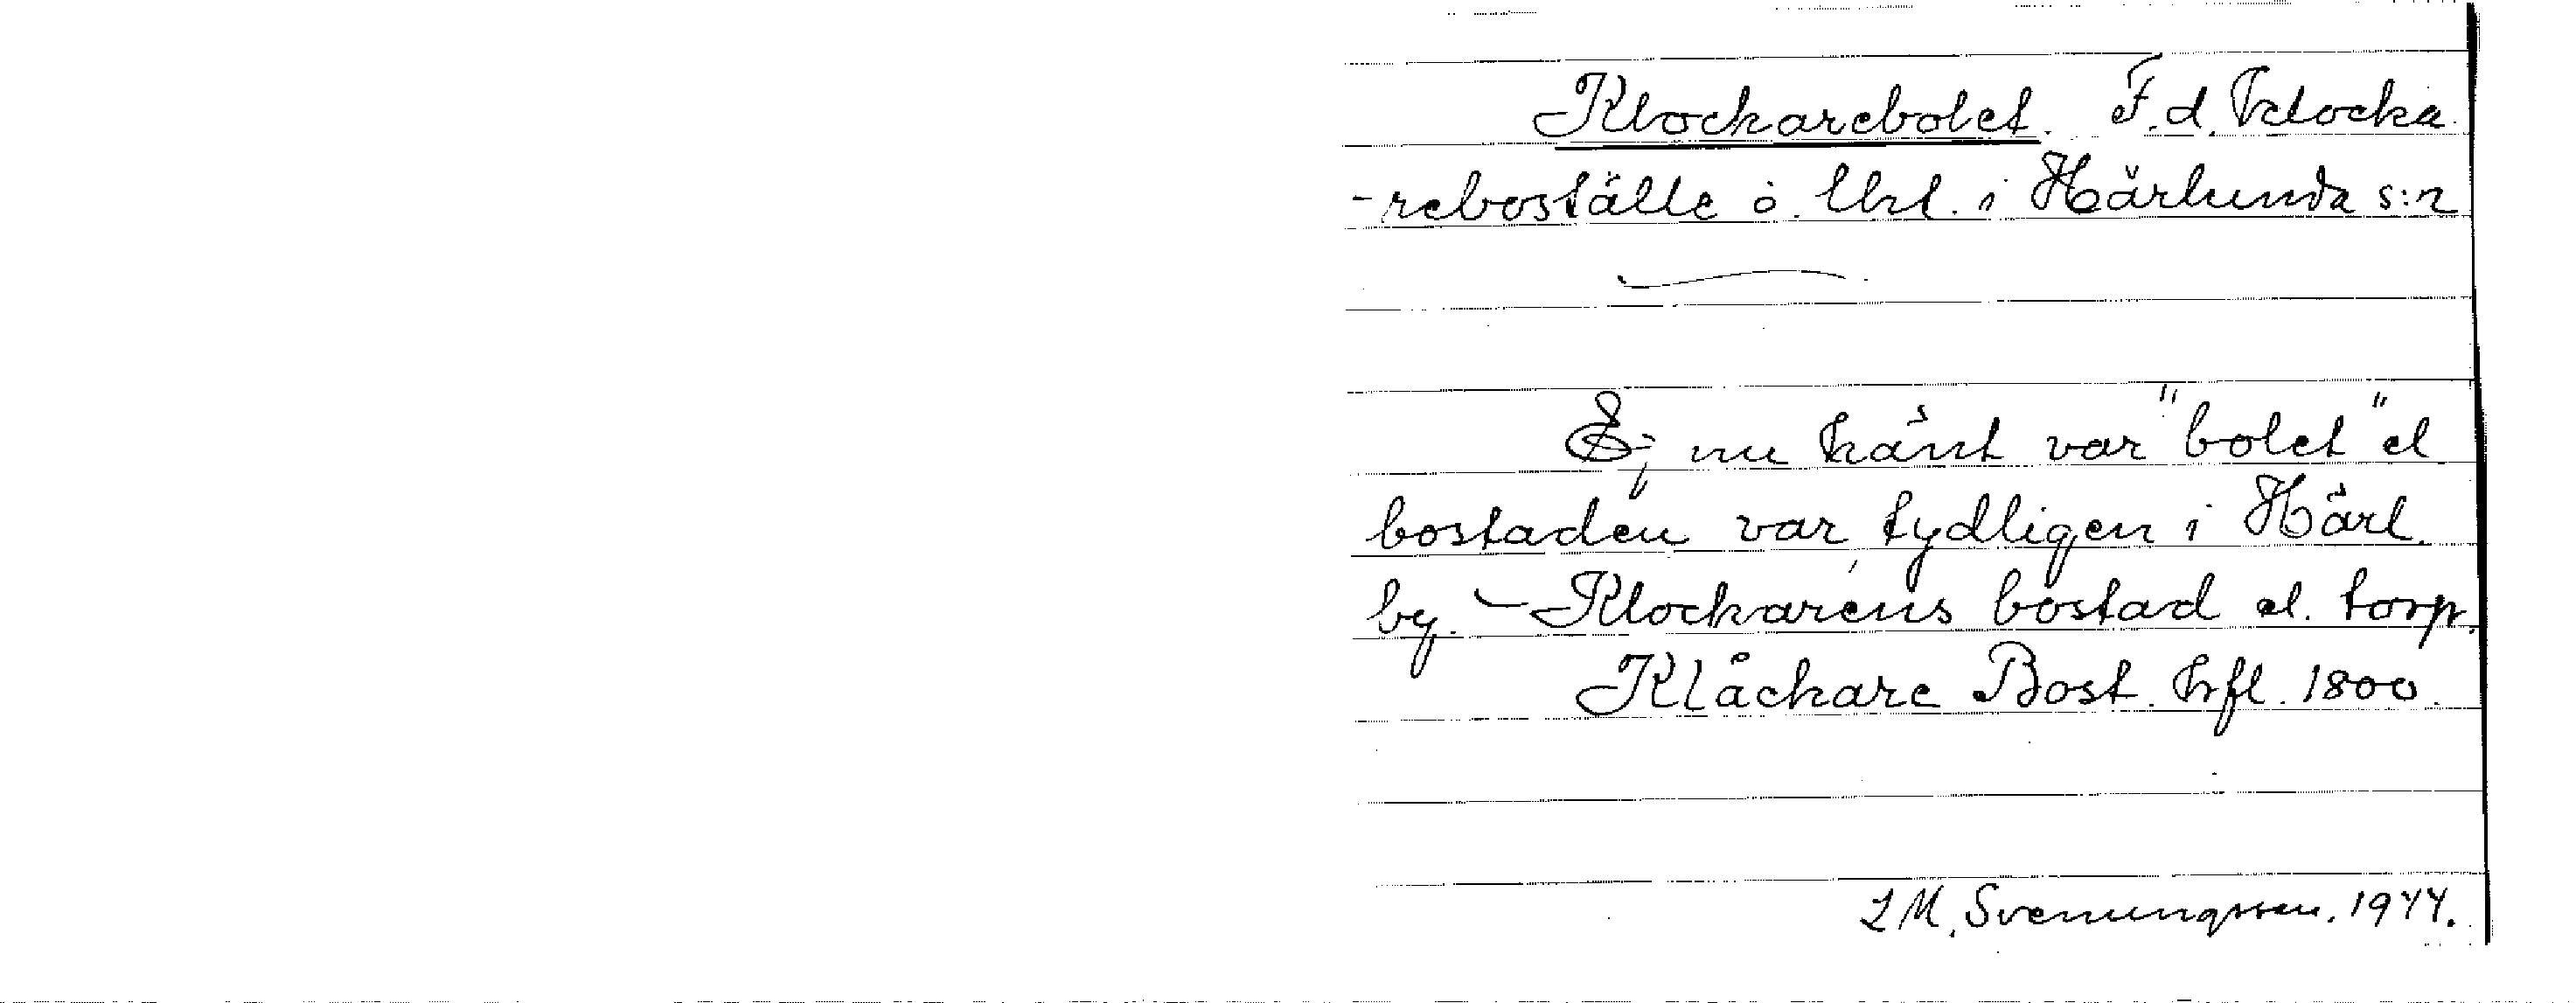 Klockarebolet. F.d. klocka
-reboställe ö. lht. i Härlunda s:n
Ej nu känt var "bolet" el
bostaden var, tydligen i Härl.
by. - Klockarens bostad el. torp.
Klåckare Bost. hfl. 1800.
L M. Svenungsson. 1944.